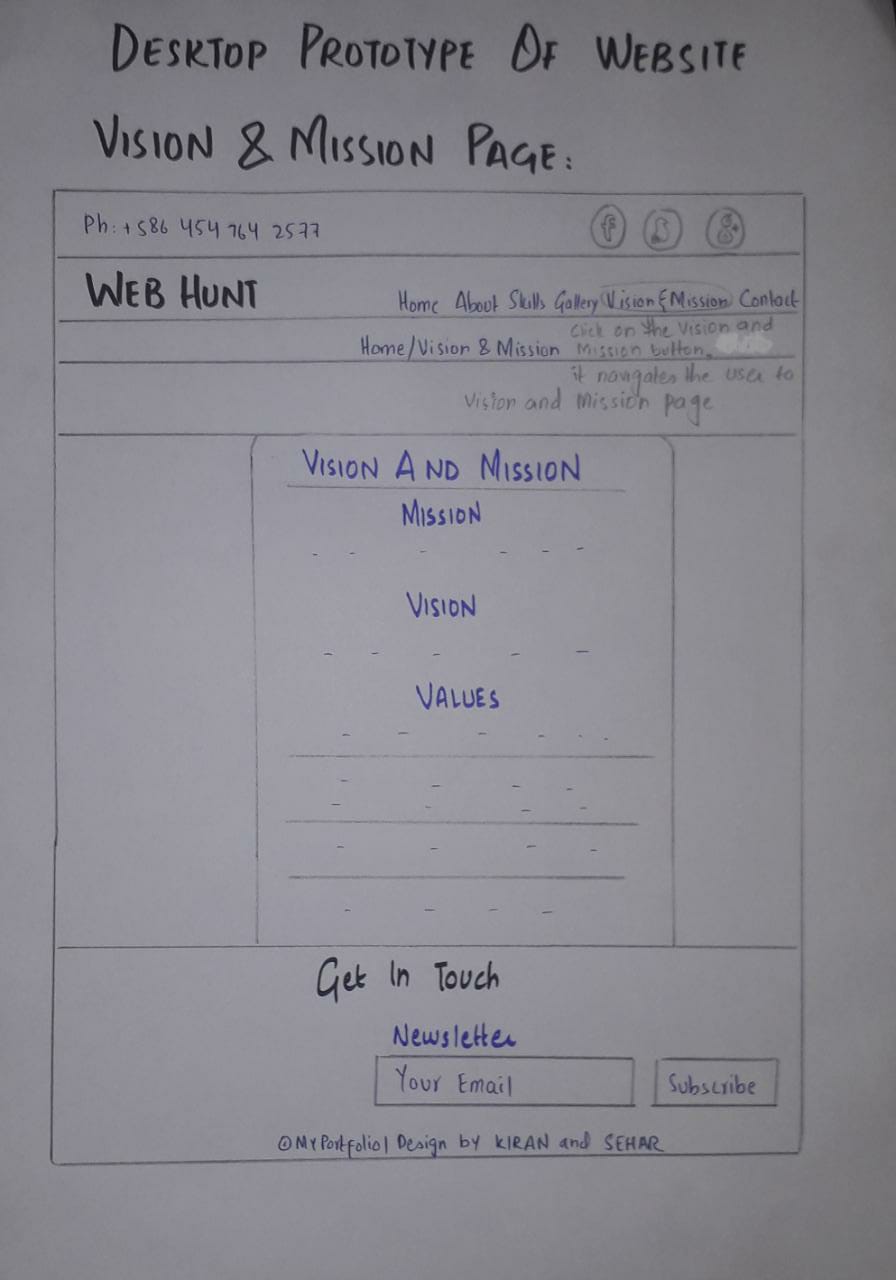 DESKTOP PROTOTYPE OF WEBSITE
VISION & MISSION PAGE:
Ph: +586 454 764 2577
f
WEB HUNT
Home About Skills Gallery Vision & Mission Contact
Click on the Vision and
Home/Vision & Mission Mission button.
it navigates the user to
Vision and Mission page
VISION AND MISSION
MISSION
VISION
VALUES
Get In Touch
Newsletter
Your Email Subscribe
©MyPortfolio| Design by KIRAN and SEHAR